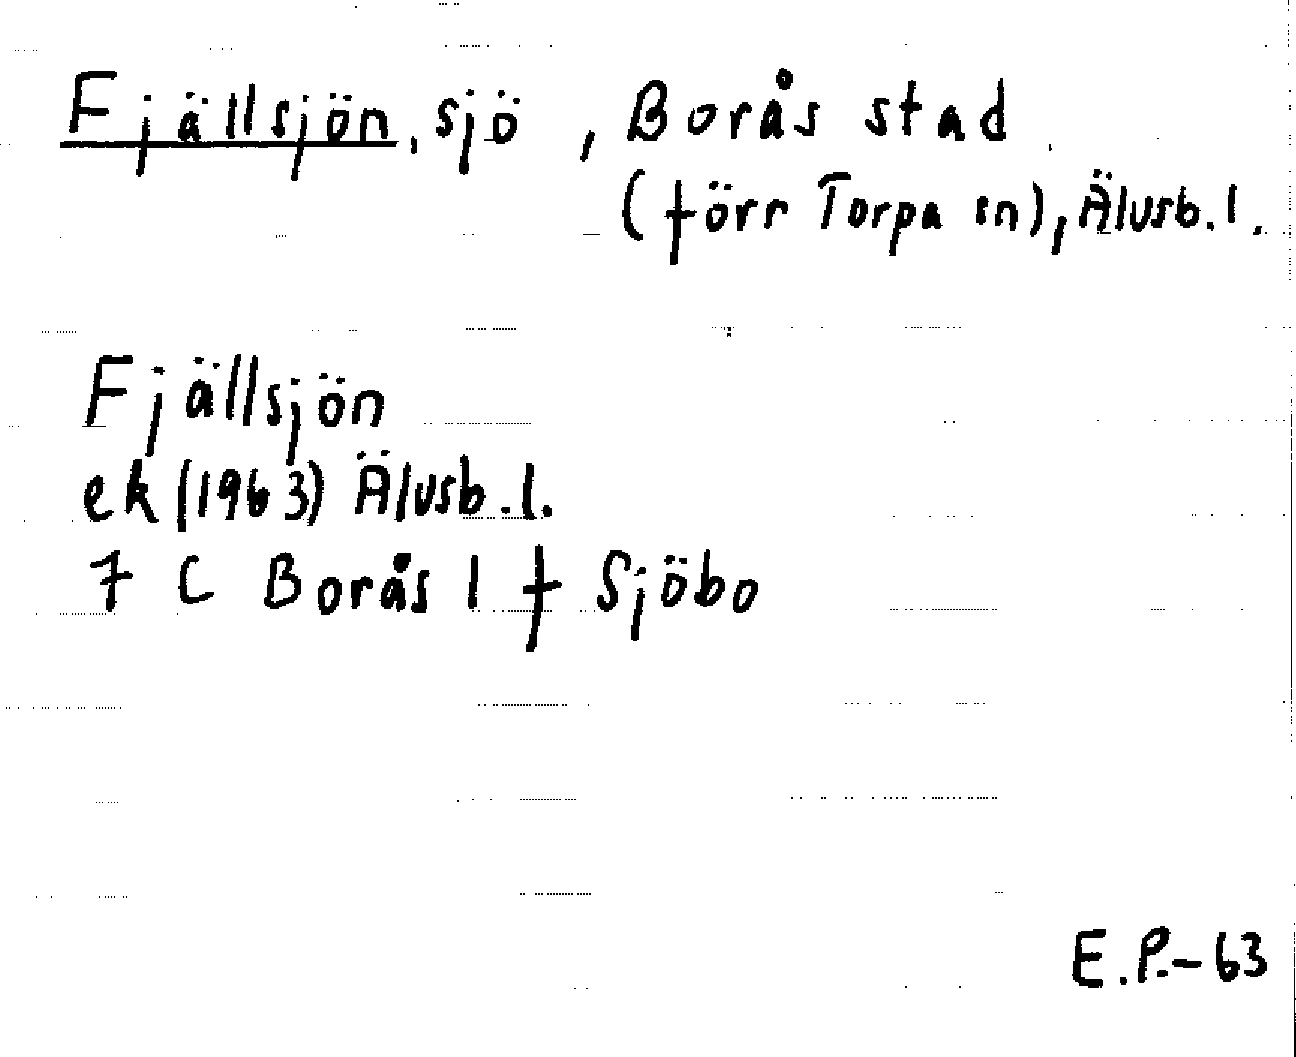 Fjällsjön, sjö, Borås stad
(förr Torpa sn), Älvsb. l.
Fjällsjön
ek (1963) Älvsb. l.
7 C Borås 1 f Sjöbo
E.P.-63